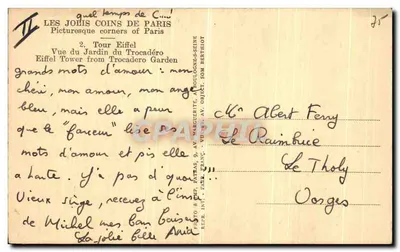 II
quel temps de C...!
LES JOLIS COINS DE PARIS
Picturesque corners of Paris
2. Tour Eiffel
Vue du Jardin du Trocadéro
Eiffel Tower from Trocadero Garden
grands mots d'amour : mon
chéri, mon amour, mon ange
bleu, mais elle a peur
que le "farceur" lise ses
mots d'amour et pis elle
a honte. Y'a pas d'quoi !!!
Vieux singe, recevez à l'inst
de Michel mes bons baisers
La jolie fille
75
Mr Albert Ferry
Le
Le Tholy
Vosges